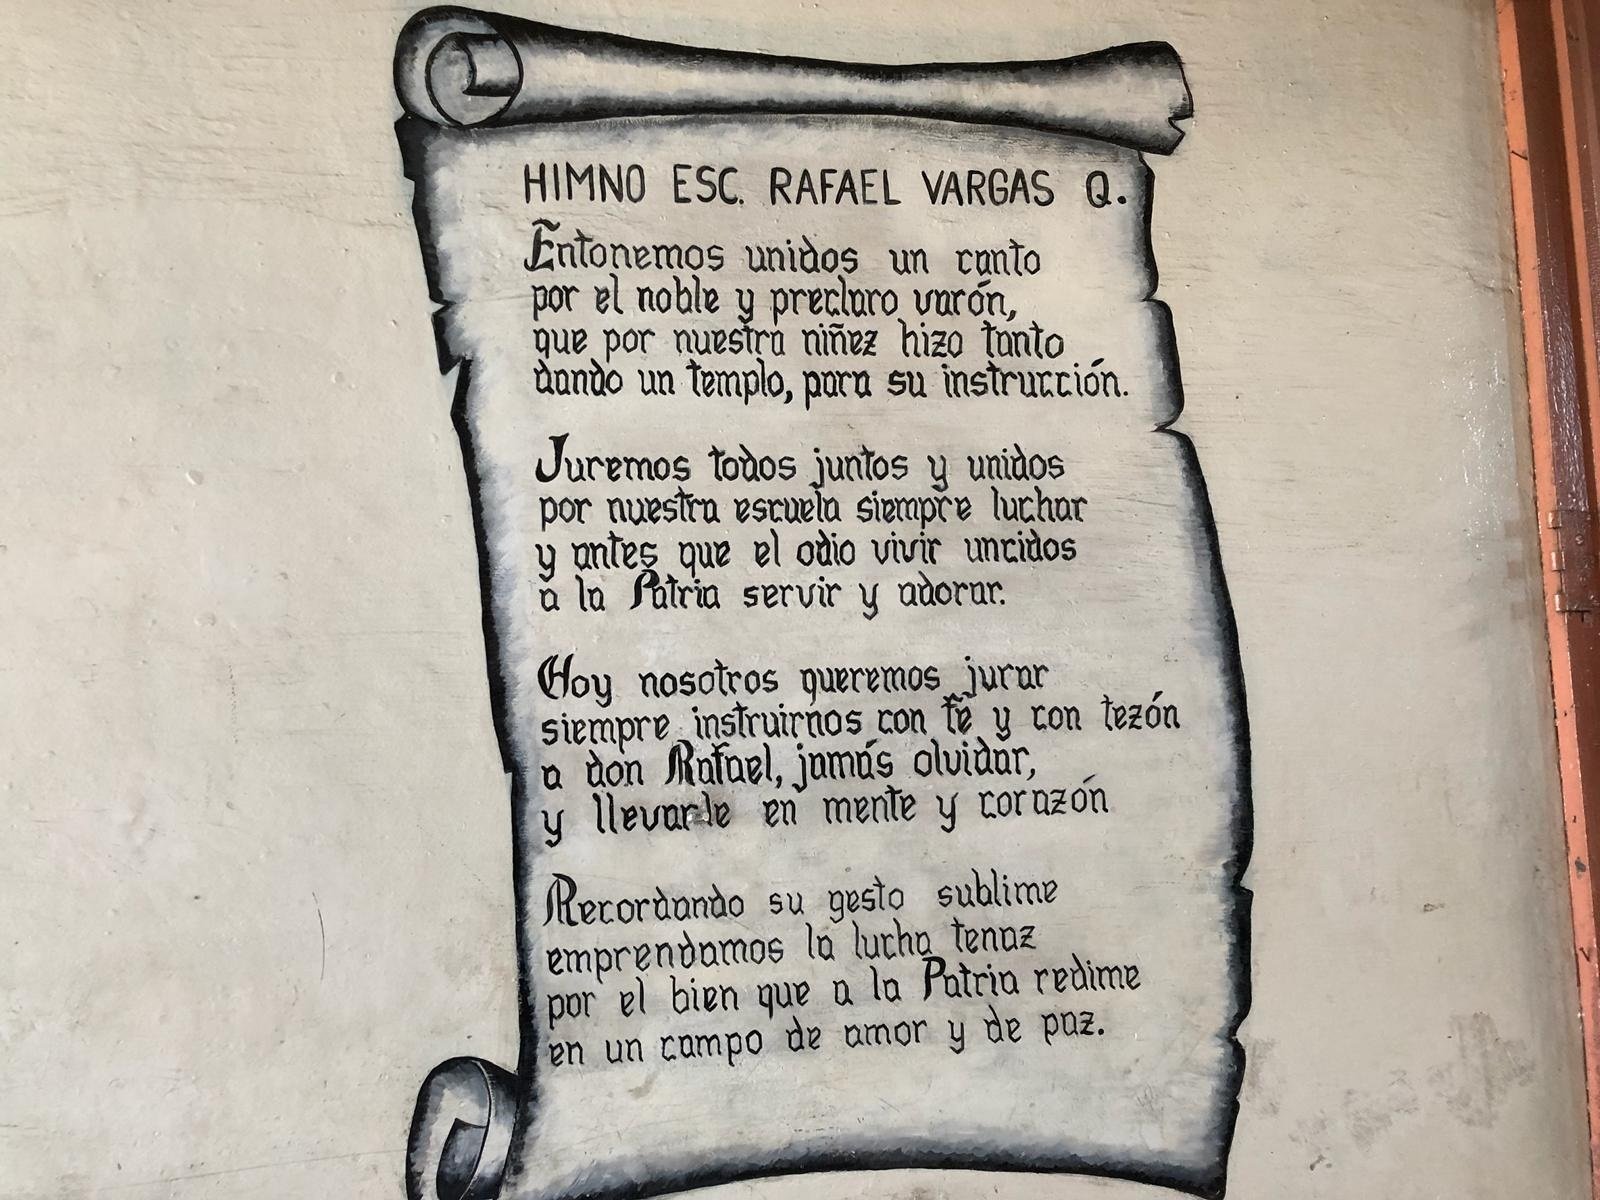 HIMNO ESC. RAFAEL VARGAS Q.
Entonemos unidos un canto
por el noble y preclaro varón,
que por nuestra niñez hizo tanto
dando un templo, para su instrucción.
Juremos todos juntos y unidos
por nuestra escuela siempre luchar
y antes que el odio vivir uncidos
a la Patria servir y adorar.
Hoy nosotros queremos jurar
siempre instruirnos con fé y con tezón
a don Rafael, jamás olvidar,
y llevarle en mente y corazón
Recordando su gesto sublime
emprendamos la lucha tenaz
por el bien que a la Patria redime
en un campo de amor y de paz.